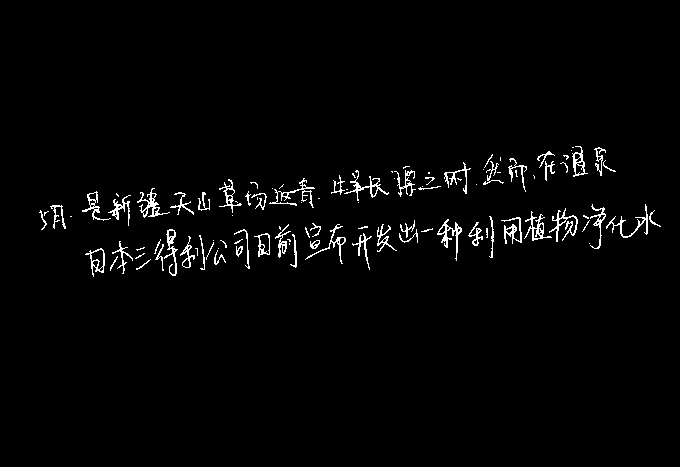 5月，是新疆天山草场返青、牲羊长膘之时。然而，在温泉
日本三得利公司日前宣布开发出一种利用植物净化水